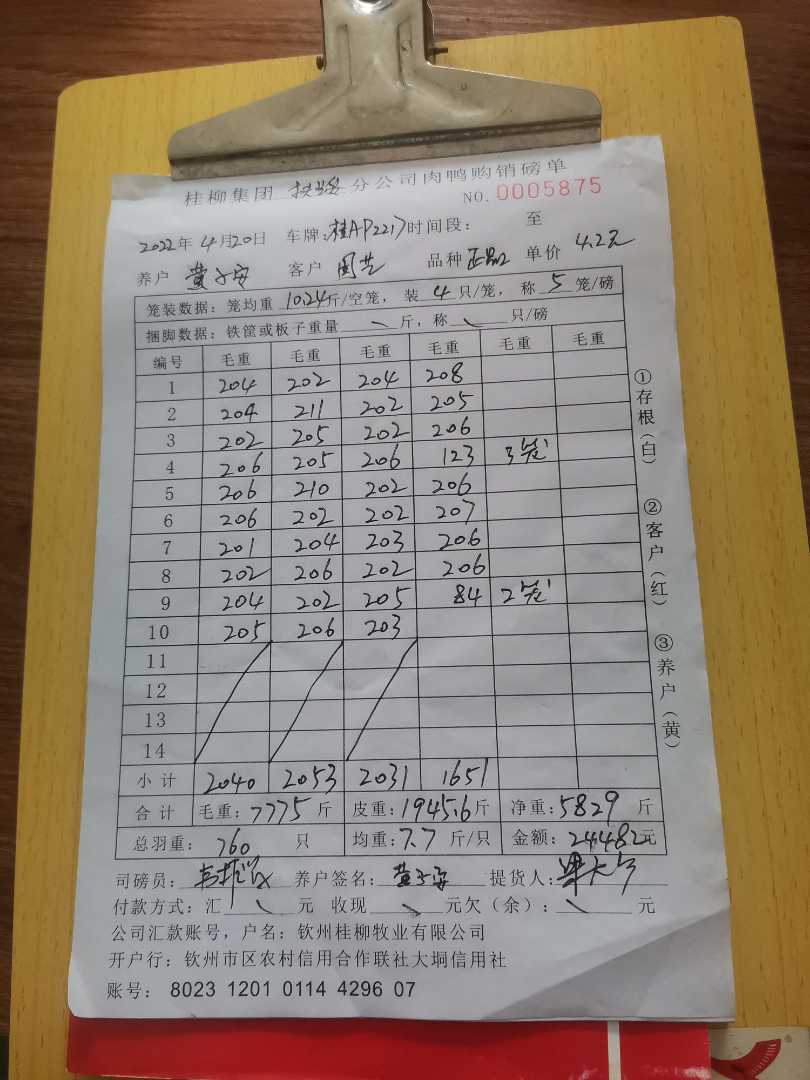 桂柳集团 分公司肉鸭购销磅单
NO.0005875
2022年4月20日 车牌:桂AP2217 时间段: 至
养户 黄子安 客户 周艺 品种 正品 单价 4.2元
笼装数据:笼均重 10.24斤/空笼,装 4 只/笼,称 5 笼/磅
捆脚数据:铁筐或板子重量 \ 斤,称 \ 只/磅
编号 毛重 毛重 毛重 毛重 毛重 毛重
1 204 202 204 208
2 204 211 202 205
3 202 205 202 206
4 206 205 206 123 3笼
5 206 210 202 206
6 206 202 202 207
7 201 204 203 206
8 202 206 202 206
9 204 202 205 84 2笼
10 205 206 203
11
12
13
14
小计 2040 2053 2031 1651
合计 毛重:7775斤 皮重:1945.6斤 净重:5829 斤
总羽重: 760 只 均重:7.7 斤/只 金额:24482元
司磅员: 养户签名:黄子安 提货人:
付款方式:汇 \ 元 收现 \ 元欠(余): \ 元
公司汇款账号,户名:钦州桂柳牧业有限公司
开户行:钦州市区农村信用合作联社大垌信用社
账号: 8023 1201 0114 4296 07
①存根(白)
②客户(红)
③养户(黄)